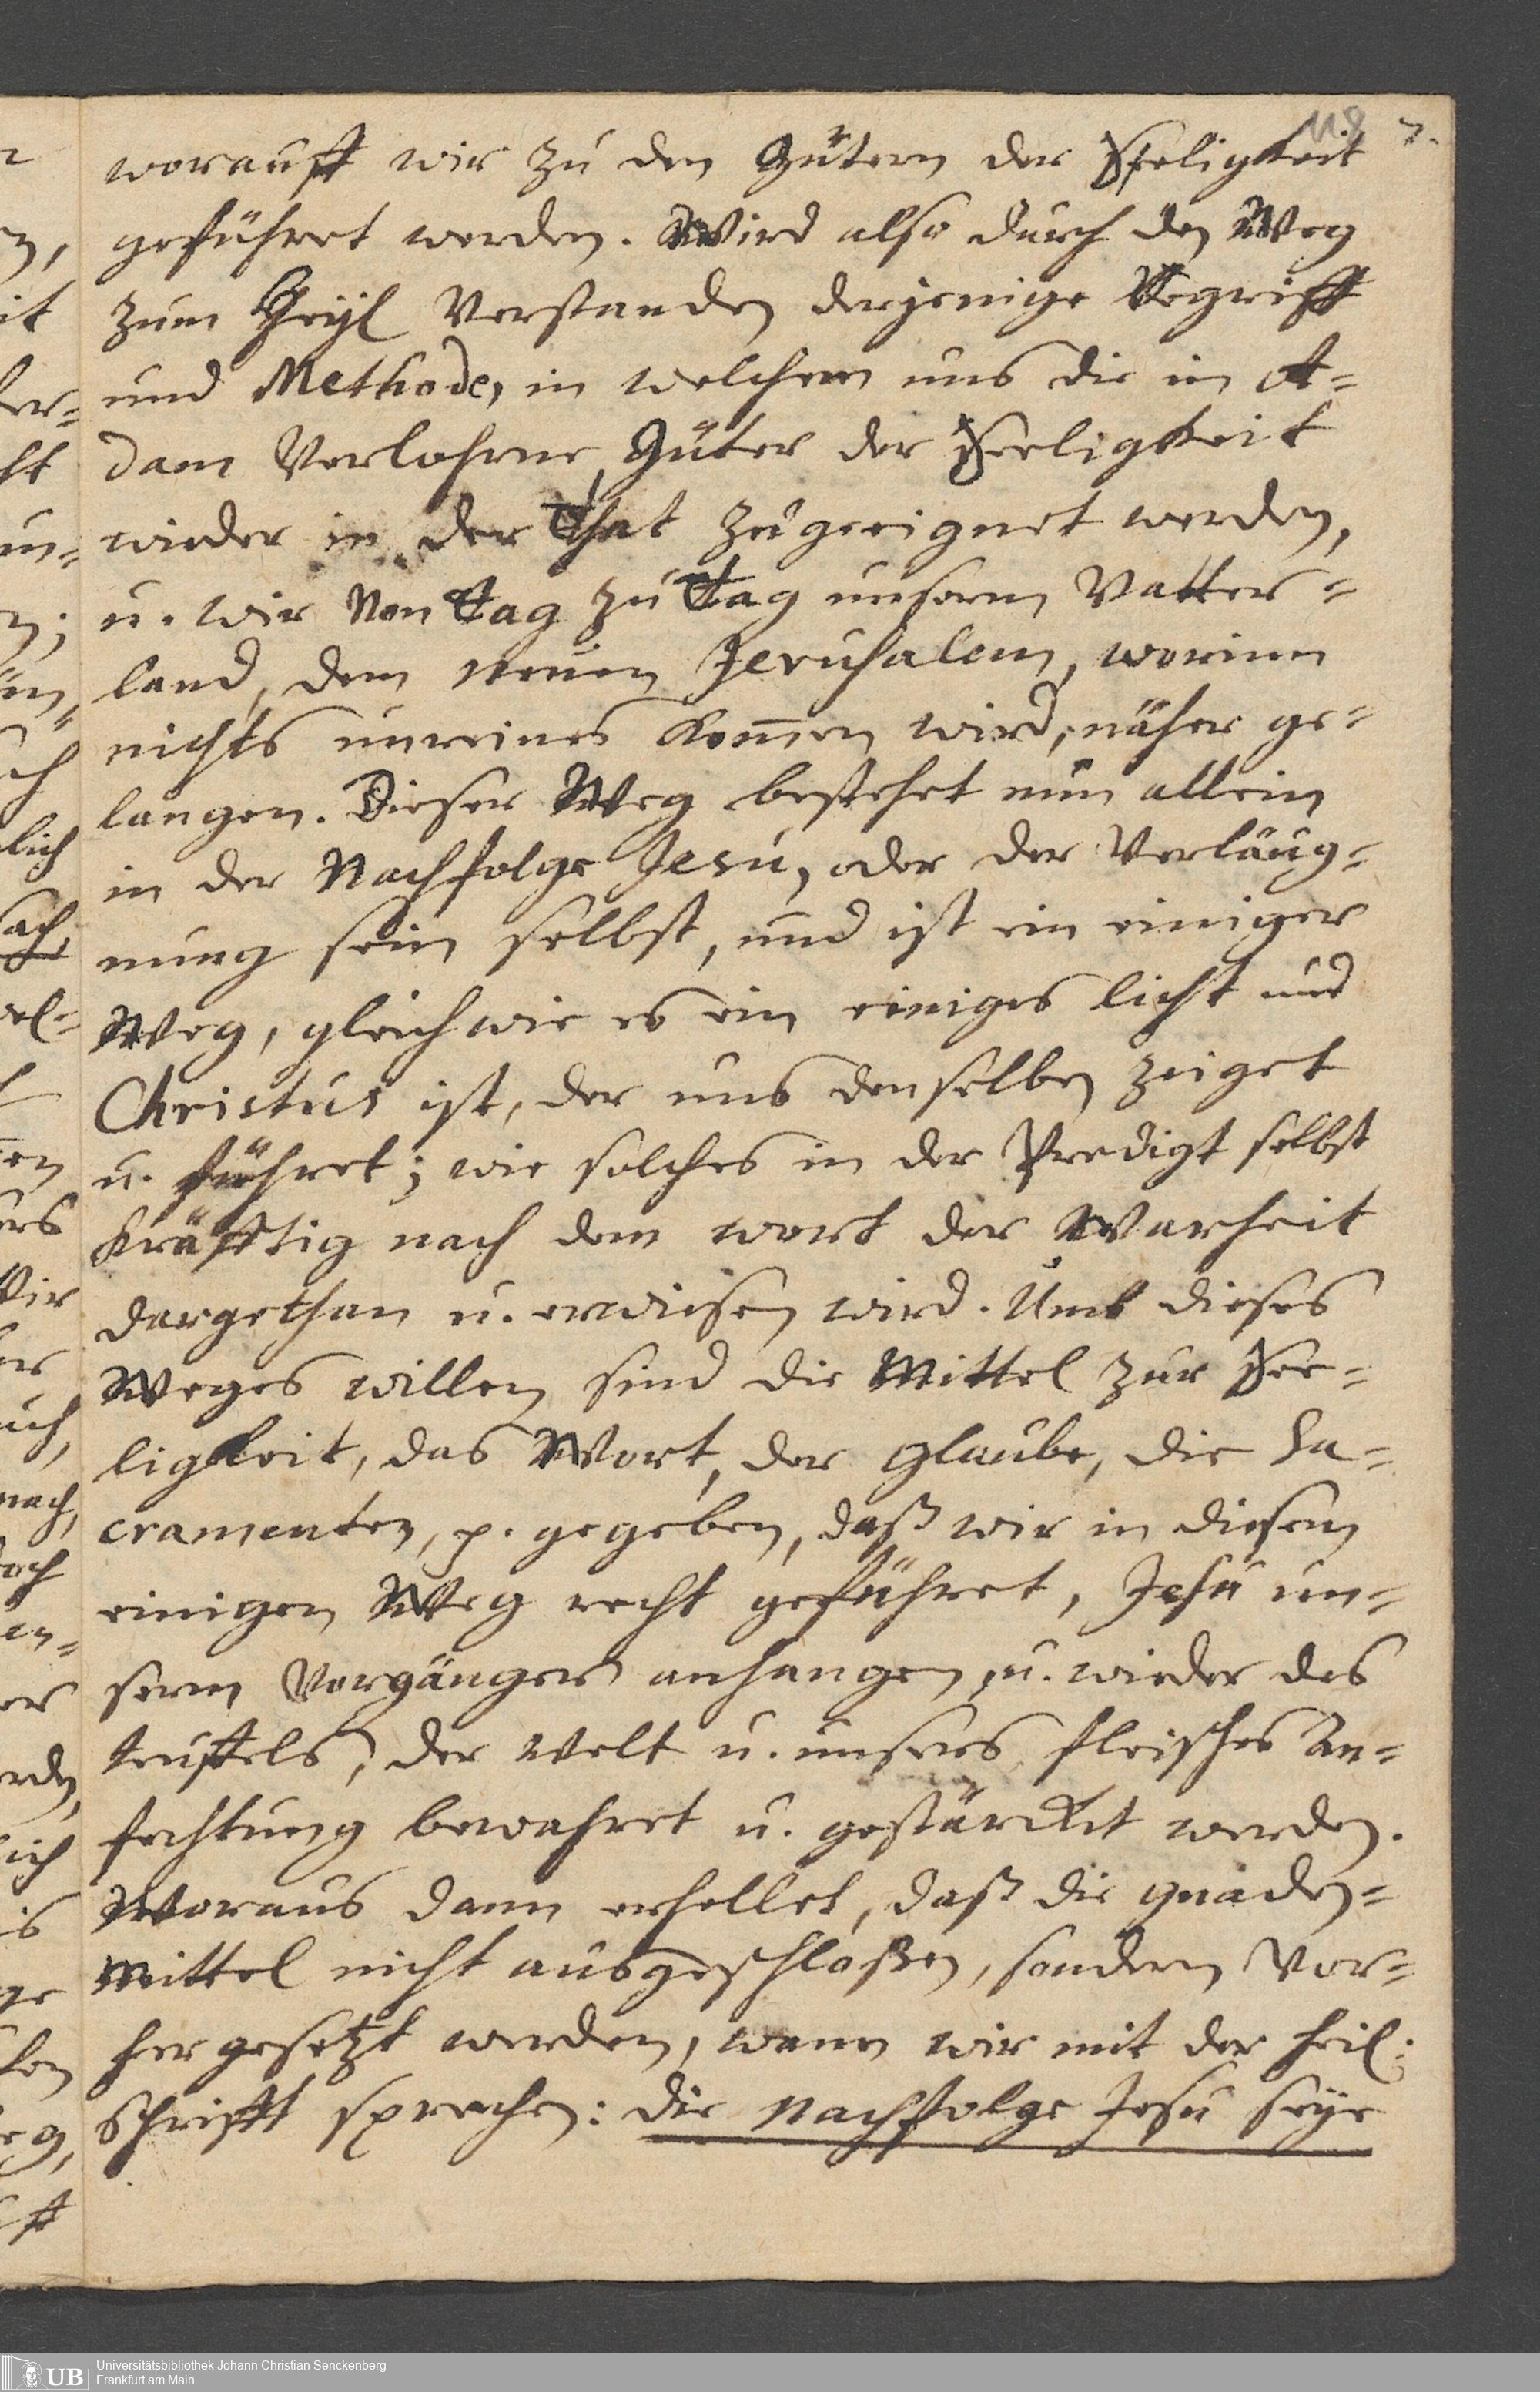 118 7.
worauff wir zu den Gütern der Seeligkeit
geführet werden. Wird also durch den Weg
zum Heyl verstanden derjenige Begriff
und Methode, in welchem uns die in A-
dam verlohrne Güter der Seeligkeit
wieder in der That zugeeignet werden,
u. wir von Tag zu Tag unserm Vatter-
land, dem neuen Jerusalem, worinn
nichts unreines kom̄en wird, näher ge-
langen. Dieser Weg bestehet nun allein
in der Nachfolge Jesu, oder der Verläug-
nung sein selbst, und ist ein einiger
Weg, gleichwie es ein einiges licht und
Christus ist, der uns denselben zeiget
u. führet; wie solches in der Predigt selbst
kräfftig nach dem wort der Warheit
dargethan u. erwiesen wird. Umb dieses
Weges willen sind die Mittel zur See-
ligkeit, das Wort, der glaube, die Sa-
cramenten, p. gegeben, daß wir in diesem
einigen Weg recht geführet, Jesu un-
serm Vorgänger anhangen, u. wieder des
teuffels, der welt u. unsers fleisches An-
fechtung bewahret u. gestärcket werden.
Woraus dann erhellet, daß die gnaden-
Mittel nicht ausgeschloßen, sondern vor-
her gesetzt werden, wann wir mit der heil:
Schrifft sprechen: die Nachfolge Jesu seye
UB
Universitätsbibliothek Johann Christian Senckenberg
Frankfurt am Main